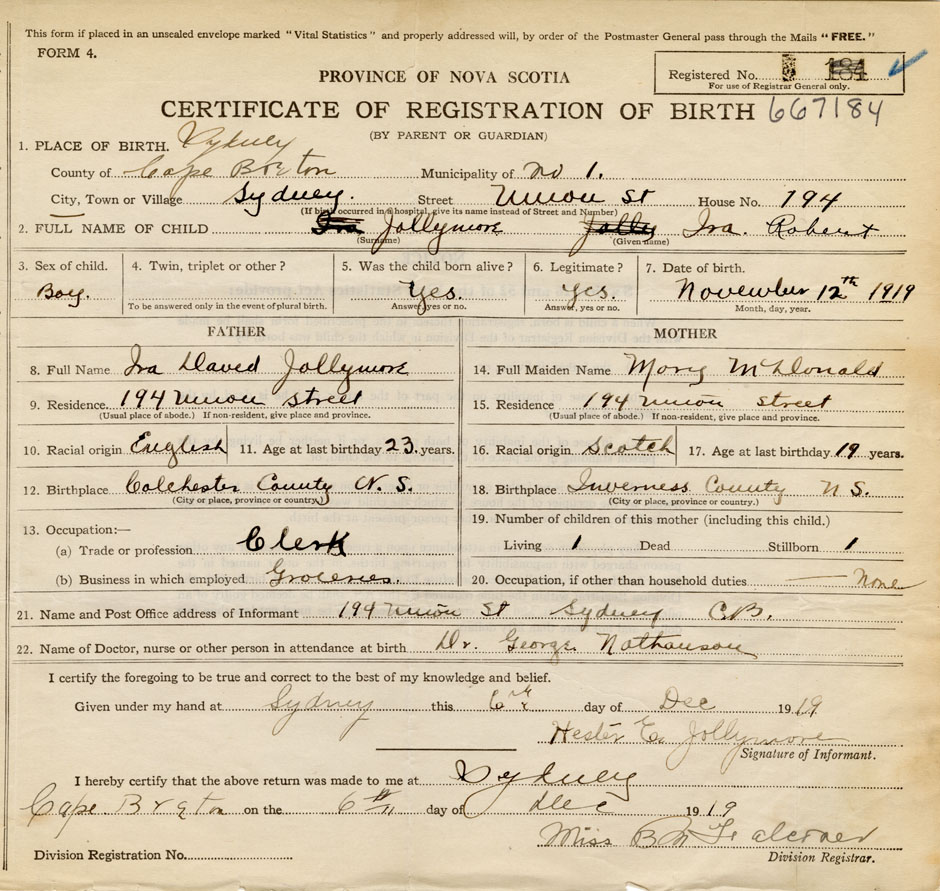 This form if placed in an unsealed envelope marked "Vital Statistics" and properly addressed will, by order of the Postmaster General pass through the Mails "FREE."
FORM 4.
PROVINCE OF NOVA SCOTIA
Registered No. 184
For use of Registrar General only.
CERTIFICATE OF REGISTRATION OF BIRTH 667184
(BY PARENT OR GUARDIAN)
1. PLACE OF BIRTH. Sydney
County of Cape Breton Municipality of No 1.
City, Town or Village Sydney. Street Union St House No. 194
(If birth occurred in a hospital, give its name instead of Street and Number)
2. FULL NAME OF CHILD Ira Jollymore Jolly Ira. Robert
(Surname) (Given name)
3. Sex of child. 4. Twin, triplet or other? 5. Was the child born alive? 6. Legitimate? 7. Date of birth.
Boy. Yes. Yes. November 12th 1919
To be answered only in the event of plural birth. Answer, yes or no. Answer, yes or no. Month, day, year.
FATHER MOTHER
8. Full Name Ira David Jollymore 14. Full Maiden Name Mary McDonald
9. Residence. 194 Union street 15. Residence 194 Union street
(Usual place of abode.) If non-resident, give place and province. (Usual place of abode.) If non-resident, give place and province.
10. Racial origin English 11. Age at last birthday 23. years. 16. Racial origin Scotch 17. Age at last birthday 19 years.
12. Birthplace Colchester County N. S. 18. Birthplace Inverness County N S.
(City or place, province or country.) (City or place, province or country.)
13. Occupation:— 19. Number of children of this mother (including this child.)
(a) Trade or profession Clerk Living 1 Dead Stillborn 1
(b) Business in which employed Groceries. 20. Occupation, if other than household duties — None
21. Name and Post Office address of Informant 194 Union St Sydney C.B.
22. Name of Doctor, nurse or other person in attendance at birth Dr. George Nathanson
I certify the foregoing to be true and correct to the best of my knowledge and belief.
Given under my hand at Sydney this 6th day of Dec 1919
Hester E. Jollymore
Signature of Informant.
I hereby certify that the above return was made to me at Sydney
Cape Breton on the 6th day of Dec 1919
Miss B
Division Registration No. Division Registrar.